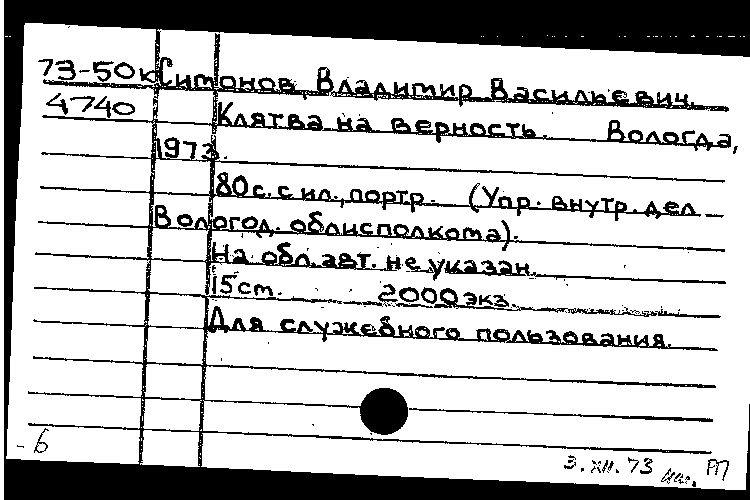 73-50к Ситонов, Владимир Васильевич.
4740 Клятва на верность. Вологда,
1973.
80 с. с ил., портр. (Упр. внутр. дел
Вологод. облисполкома).
На обл. авт. не указан.
15 см. 2000 экз.
Для служебного пользования.
- 6
3.XII.73